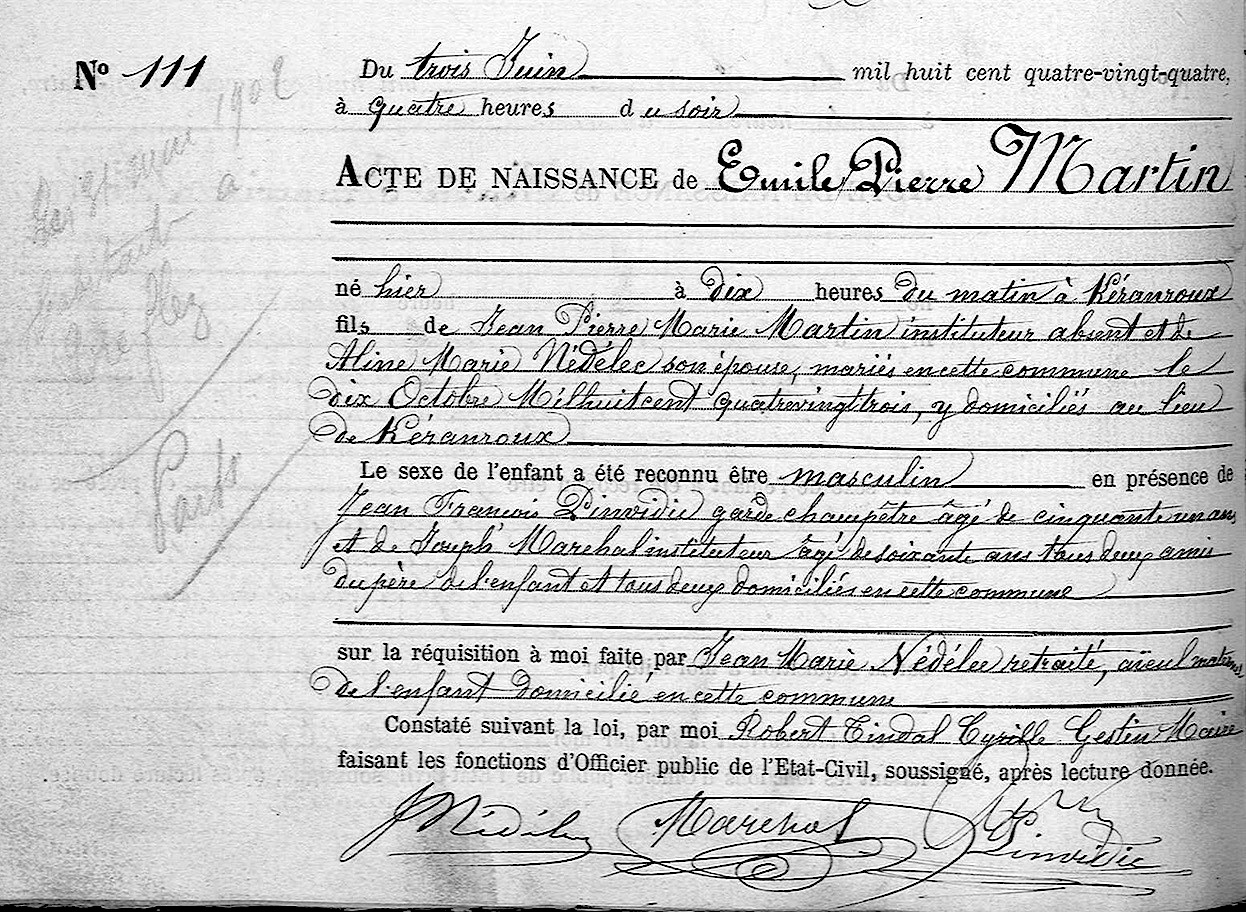 Nº 111
Du trois Juin mil huit cent quatre-vingt-quatre,
à quatre heures du soir
ACTE DE NAISSANCE de Emile Pierre Martin
né hier à dix heures du matin à Kéranroux
fils de Jean Pierre Marie Martin instituteur absent et de
Aline Marie Nédélec son épouse, mariés en cette commune le
dix Octobre Mil huit cent quatre vingt trois, y domiciliés au lieu
de Kéranroux
Le sexe de l'enfant a été reconnu être masculin en présence de
Jean François Pinvidic garde champêtre âgé de cinquante un ans
et de Joseph Marehal instituteur âgé de soixante ans tous deux amis
du père de l'enfant et tous deux domiciliés en cette commune
sur la réquisition à moi faite par Jean Marie Nédélec retraité, aïeul
de l'enfant domicilié en cette commune
Constaté suivant la loi, par moi Robert Tindal Cyrille Gestin Maire
faisant les fonctions d'Officier public de l'Etat-Civil, soussigné, après lecture donnée.
1902
à
habitait
Paris
JM Nédélec Marehal Pinvidic